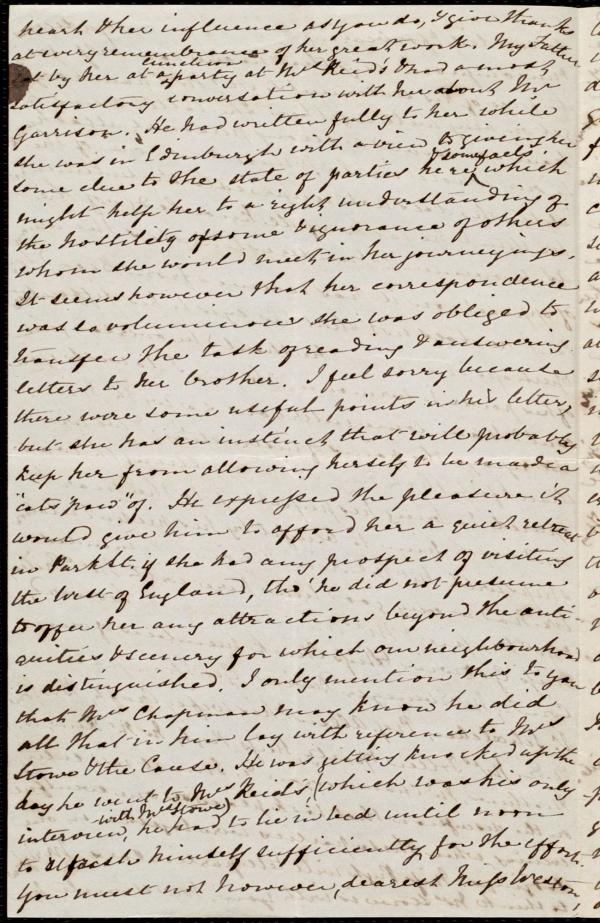 heart & her influence as you do, & give thanks
at every remembrance of her great work. My Father
sat by her at a luncheon party at Mrs Reid's & had a most
satisfactory conversation with her about Mr
Garrison. He had written fully to her while
she was in Edinburgh with a view to giving her
some clue to the state of parties here, & some facts which
might help her to a right understanding of
the hostility of some & ignorance of others
whom she would meet in her journeyings.
It seems however that her correspondence
was so voluminous she was obliged to
transfer the task of reading & answering
letters to her brother. I feel sorry because
there were some useful points in his letter,
but she has an instinct that will probably
keep her from allowing herself to be made a
"cats paw" of. He expressed the pleasure it
would give him to afford her a quiet retreat
in Park St. if she had any prospect of visiting
the West of England, tho' he did not presume
to offer her any attractions beyond the anti-
quities & scenery for which our neighbourhood
is distinguished. I only mention this to you
that Mrs Chapman may know he did
all that in him lay with reference to Mrs
Stowe & the Cause. He was getting knocked up the
day he went to Mrs Reid's (which was his only
interview with Mrs Stowe), he had to lie in bed until noon
to refresh himself sufficiently for the effort.
You must not however, dearest Miss Weston,